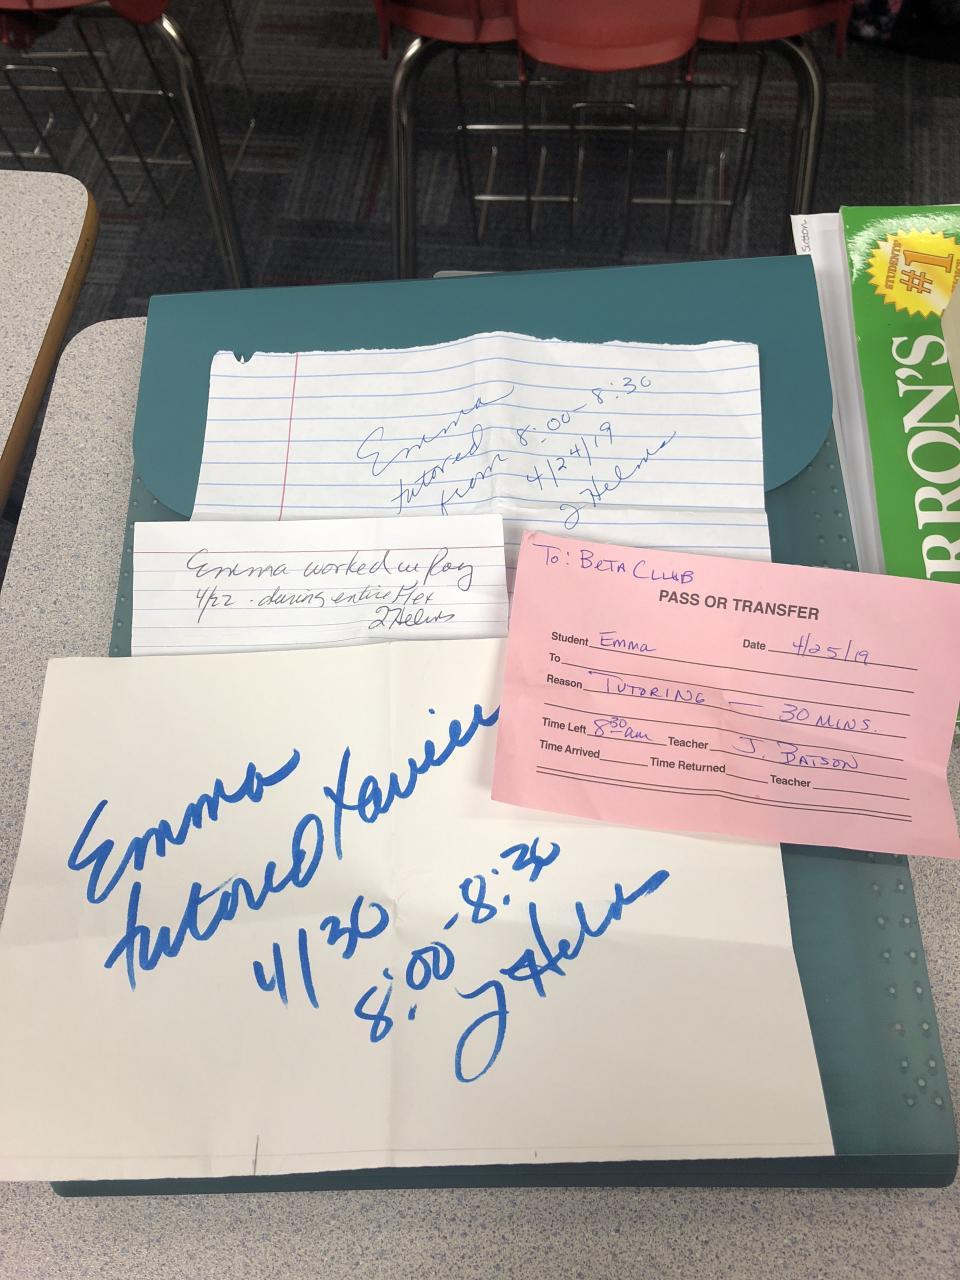 Sutton
STUDENTS'
#1
RRON'S
Emma
tutored
from 8:00-8:30
4/24/19
J Helms
Emma worked w Roy
4/22 - during entire Flex
J Helms
To: BETA CLUB
PASS OR TRANSFER
Student Emma Date 4/25/19
To
Reason TUTORING — 30 MINS.
Time Left 8:30 am Teacher J. BATSON
Time Arrived Time Returned Teacher
Emma
tutored Xavier
4/30
8:00-8:30
J Helms